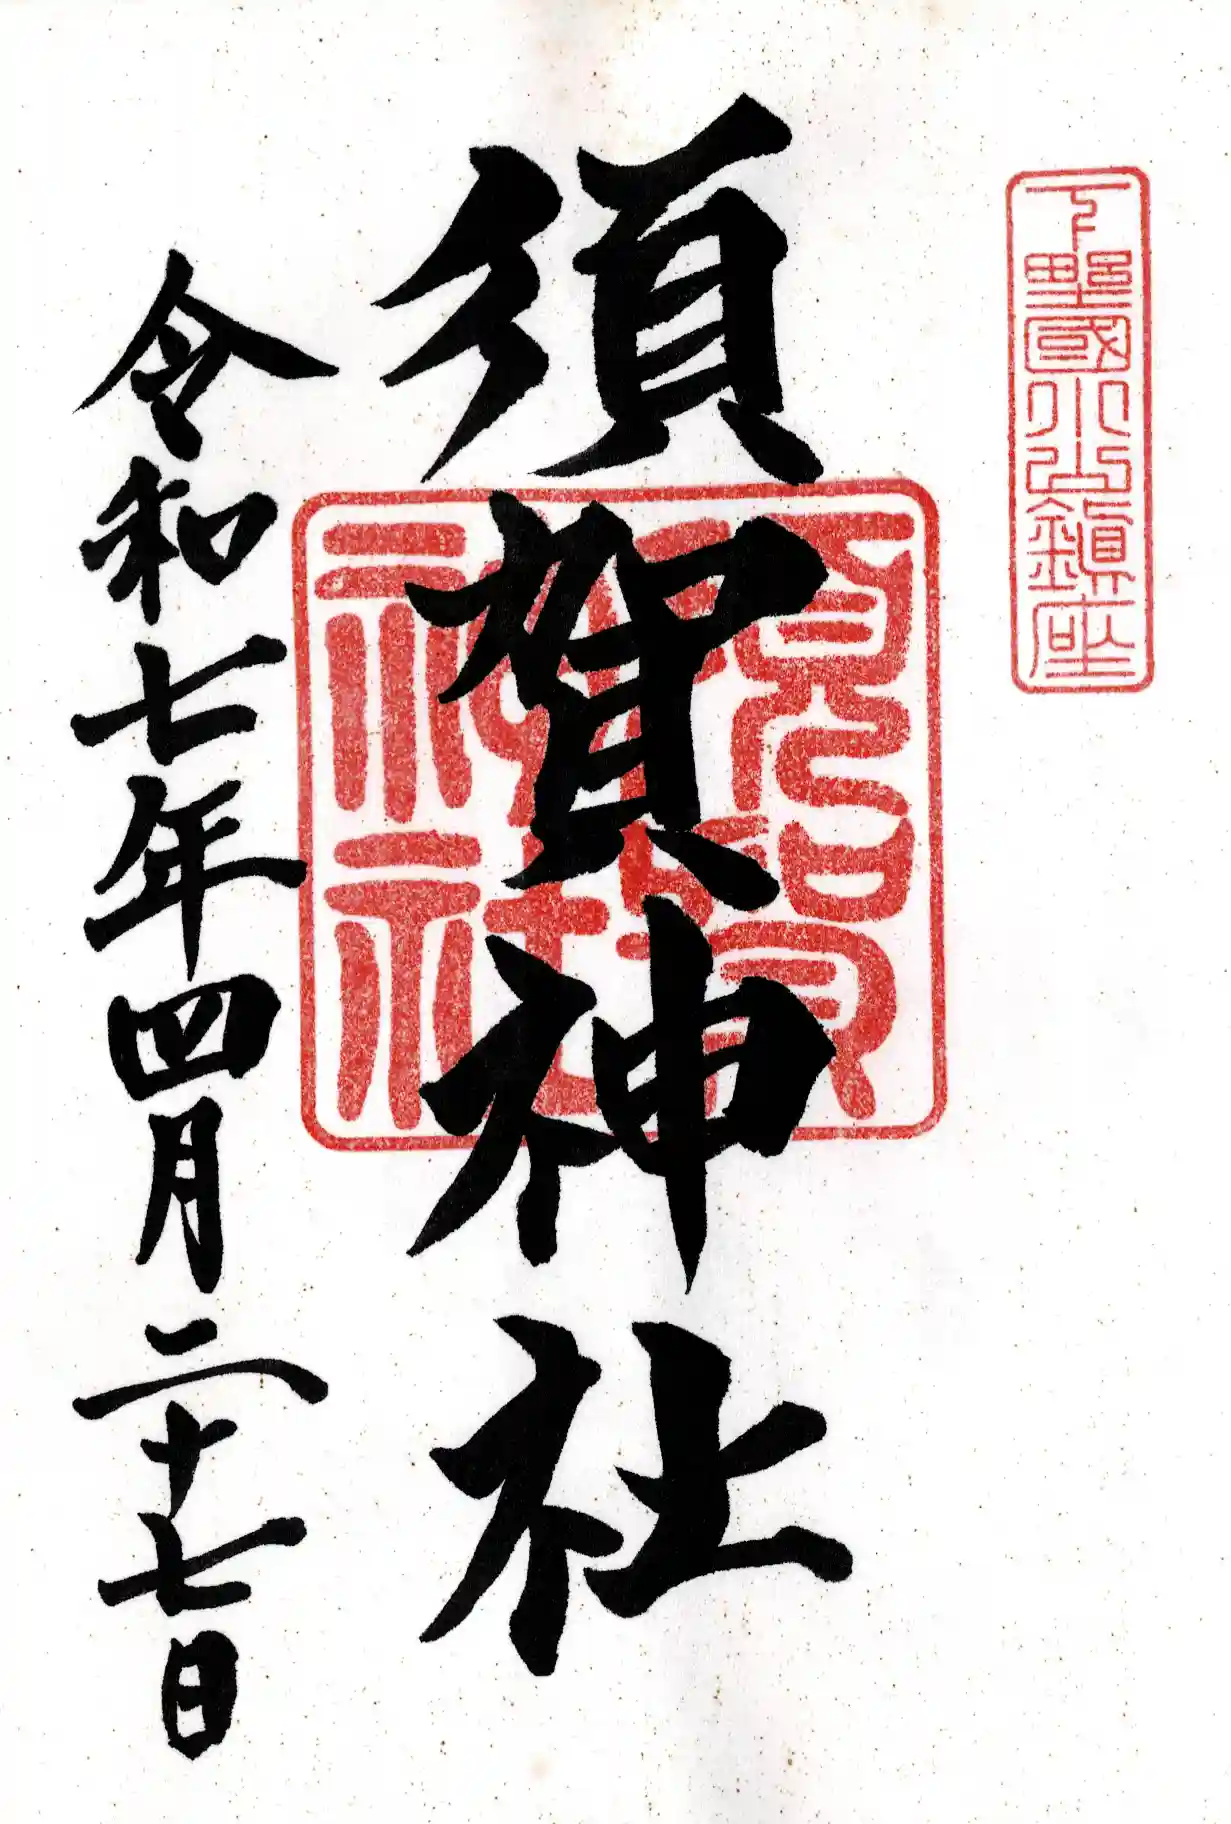 下野國小山鎮座
須賀神社
須賀神社
令和七年四月二十七日